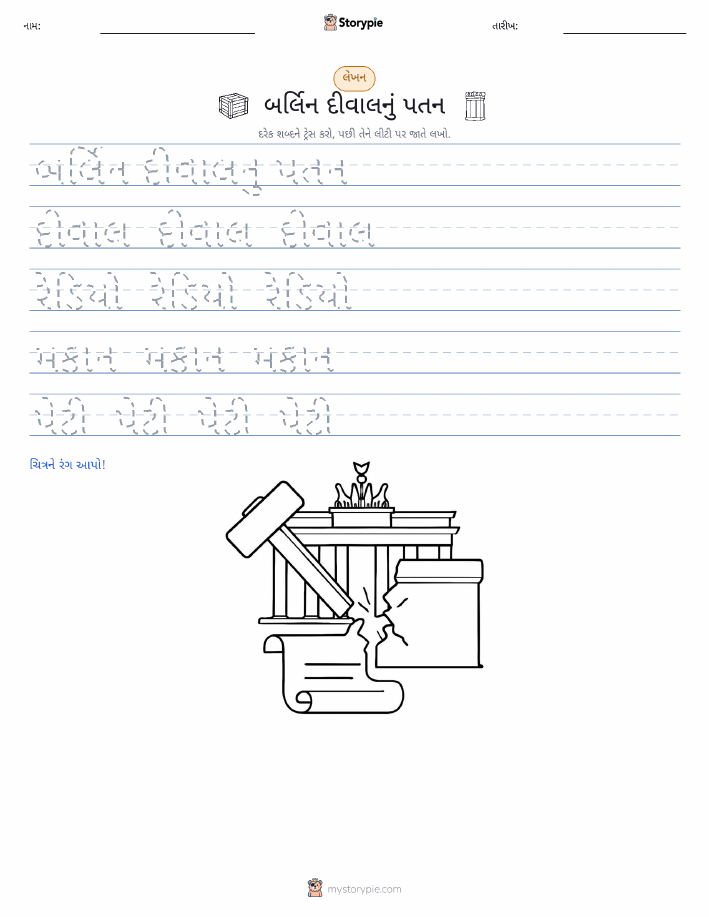 નામ: Storypie તારીખ:
લેખન
બર્લિન દીવાલનું પતન
દરેક શબ્દને ટ્રેસ કરો, પછી તેને લીટી પર જાતે લખો.
બર્લિન દીવાલનુ પતન
દીવાલ દીવાલ દીવાલ
રેડિયો રેડિયો રેડિયો
મકાન મકાન મકાન
પેટી પેટી પેટી પેટી
ચિત્રને રંગ આપો!
mystorypie.com